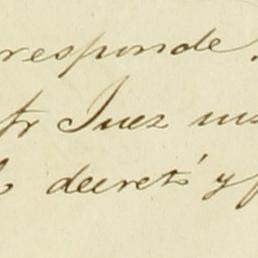 responde.
Sr Juez ins
decretó y f